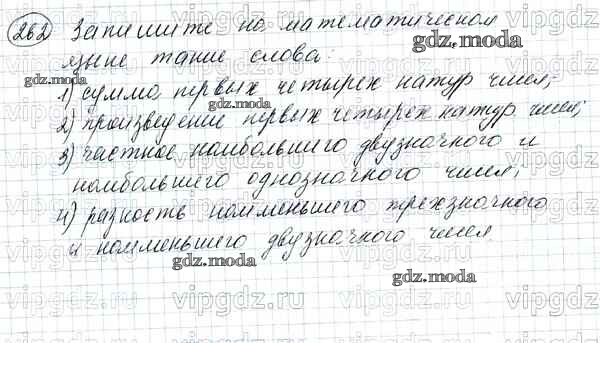 262 Запишите на математическом
языке такие слова:
1) сумма первых четырех натур чисел;
2) произведение первых четырех натур чисел;
3) частное наибольшего двузначного и
наибольшего однозначного чисел;
4) разность наименьшего трехзначного
и наименьшего двузначного чисел.
gdz.moda
gdz.moda
gdz.moda
gdz.moda
gdz.moda
vipgdz.ru